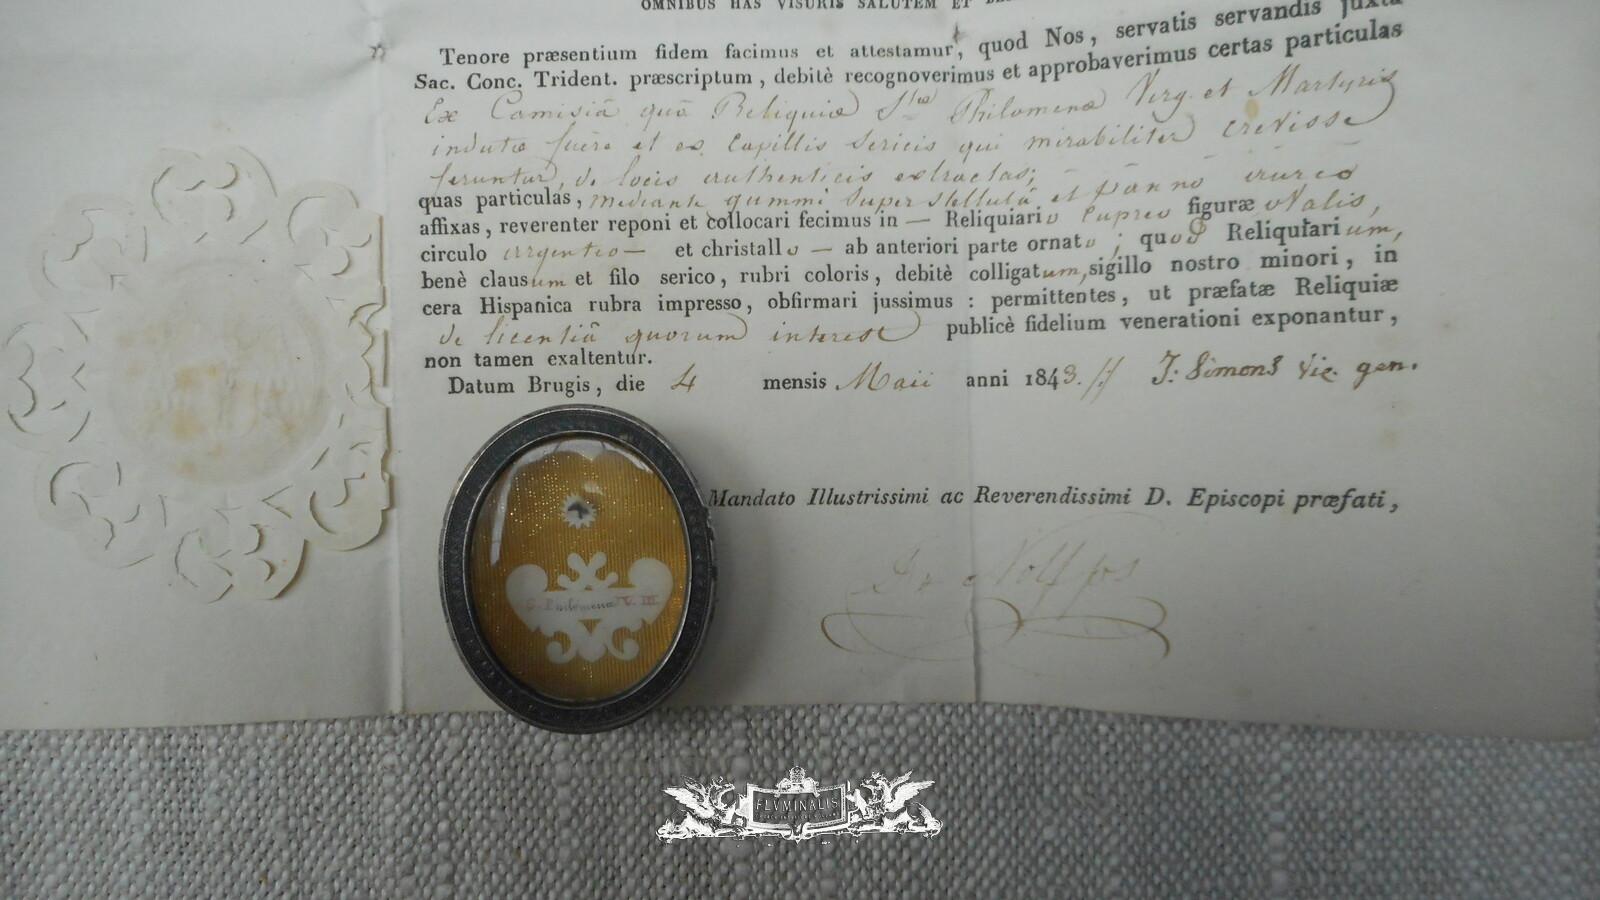 OMNIBUS HAS VISURIS SALUTEM ET
Tenore præsentium fidem facimus et attestamur, quod Nos, servatis servandis juxta
Sac. Conc. Trident. præscriptum, debitè recognoverimus et approbaverimus certas particulas
Ex Camisiâ quâ Reliquiæ Stæ Philomenæ Virg. et Martyris
indutæ fuêre et ex Capillis Sericis qui mirabiliter crevisse
feruntur, de locis authenticis extractas;
quas particulas, mediante gummi super stellulâ et pannô aureô
affixas, reverenter reponi et collocari fecimus in — Reliquiario cupreo figuræ ovalis,
circulo argenteo — et christallo — ab anteriori parte ornato; quod Reliquiarium,
benè clausum et filo serico, rubri coloris, debitè colligatum, sigillo nostro minori, in
cera Hispanica rubra impresso, obfirmari jussimus: permittentes, ut præfatæ Reliquiæ
de licentiâ quorum interest publicè fidelium venerationi exponantur,
non tamen exaltentur.
Datum Brugis, die 4 mensis Maii anni 1843. // J. Simons Vic. gen.
Mandato Illustrissimi ac Reverendissimi D. Episcopi præfati,
S. Philomenæ V. M.
FLVMINALIS